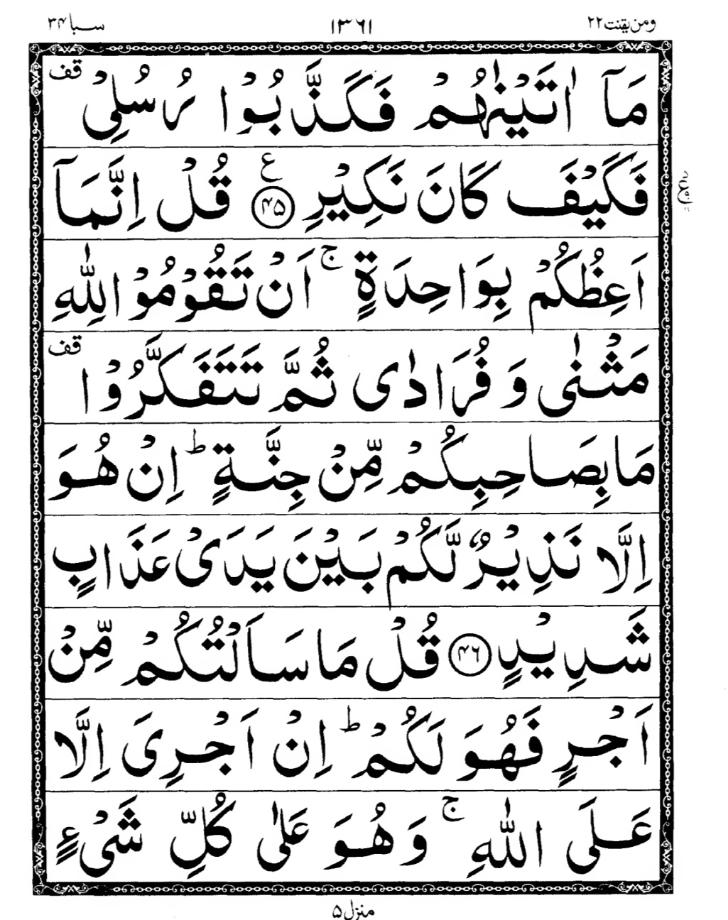 ومن يقنت ٢٢ ١٣٦١ سبا ٣٤
مَاۤ اٰتَيْنٰهُمْ فَكَذَّبُوْا رُسُلِیْ قف
فَكَيْفَ كَانَ نَكِيْرِ ﴿۴۵﴾ ع قُلْ اِنَّمَاۤ
اَعِظُكُمْ بِوَاحِدَةٍ ۚ اَنْ تَقُوْمُوْا لِلّٰهِ
مَثْنٰى وَ فُرَادٰى ثُمَّ تَتَفَكَّرُوْا قف
مَا بِصَاحِبِكُمْ مِّنْ جِنَّةٍ ؕ اِنْ هُوَ
اِلَّا نَذِيْرٌ لَّكُمْ بَيْنَ يَدَیْ عَذَابٍ
شَدِيْدٍ ﴿۴۶﴾ قُلْ مَا سَاَلْتُكُمْ مِّنْ
اَجْرٍ فَهُوَ لَكُمْ ؕ اِنْ اَجْرِیَ اِلَّا
عَلَى اللّٰهِ ۚ وَهُوَ عَلٰى كُلِّ شَیْءٍ
منزل ۵